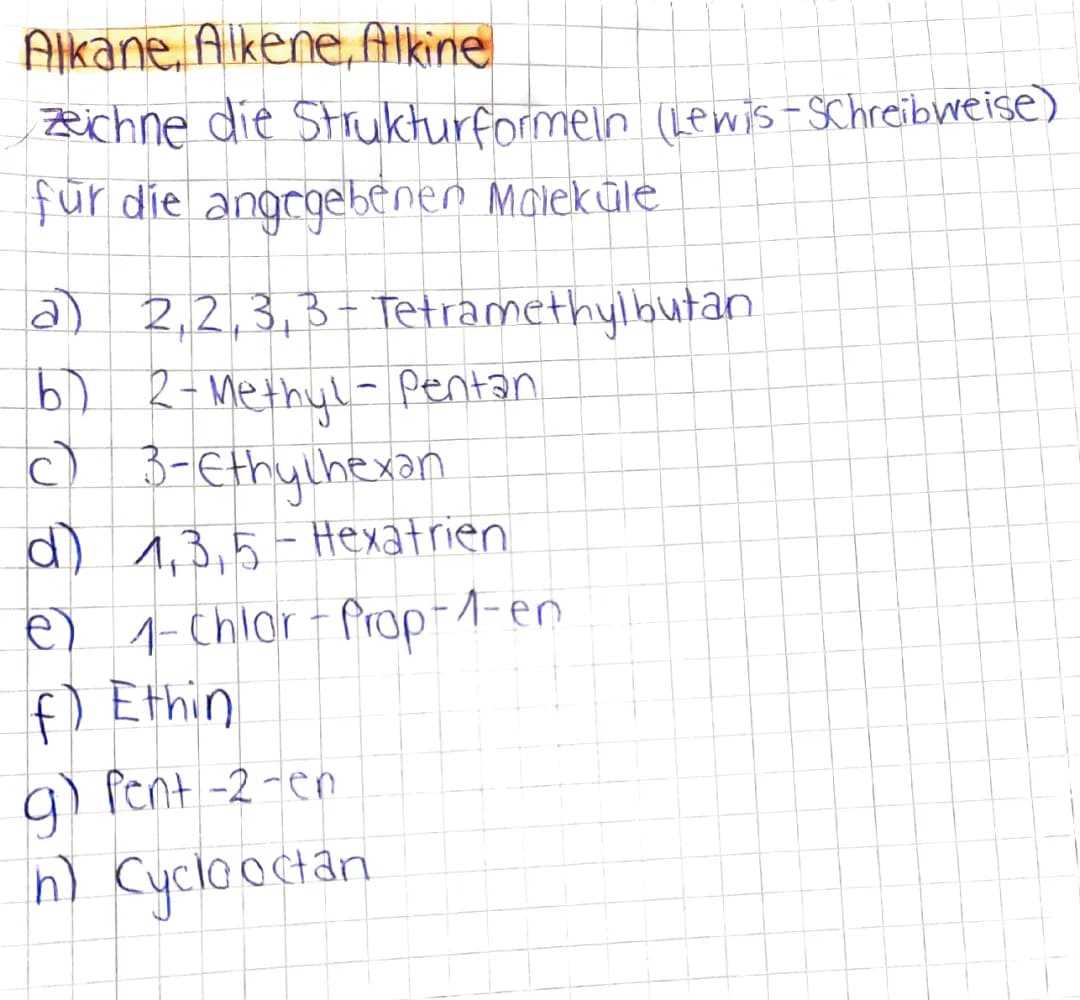 Alkane, Alkene, Alkine
zeichne die Strukturformeln (Lewis-Schreibweise)
für die angegebenen Moleküle
a) 2,2,3,3-Tetramethylbutan
b) 2-Methyl-Pentan
c) 3-Ethylhexan
d) 1,3,5-Hexatrien
e) 1-Chlor-Prop-1-en
f) Ethin
g) Pent-2-en
h) Cyclooctan